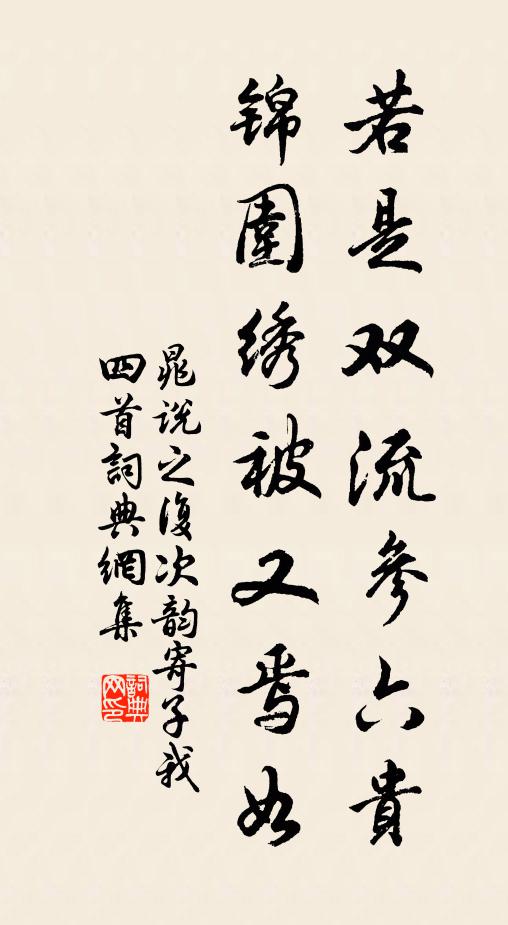 若是双流參六貴
锦圍绣被又焉如
晁说之復次韵寄子我
四首詞典網集
詞典网印